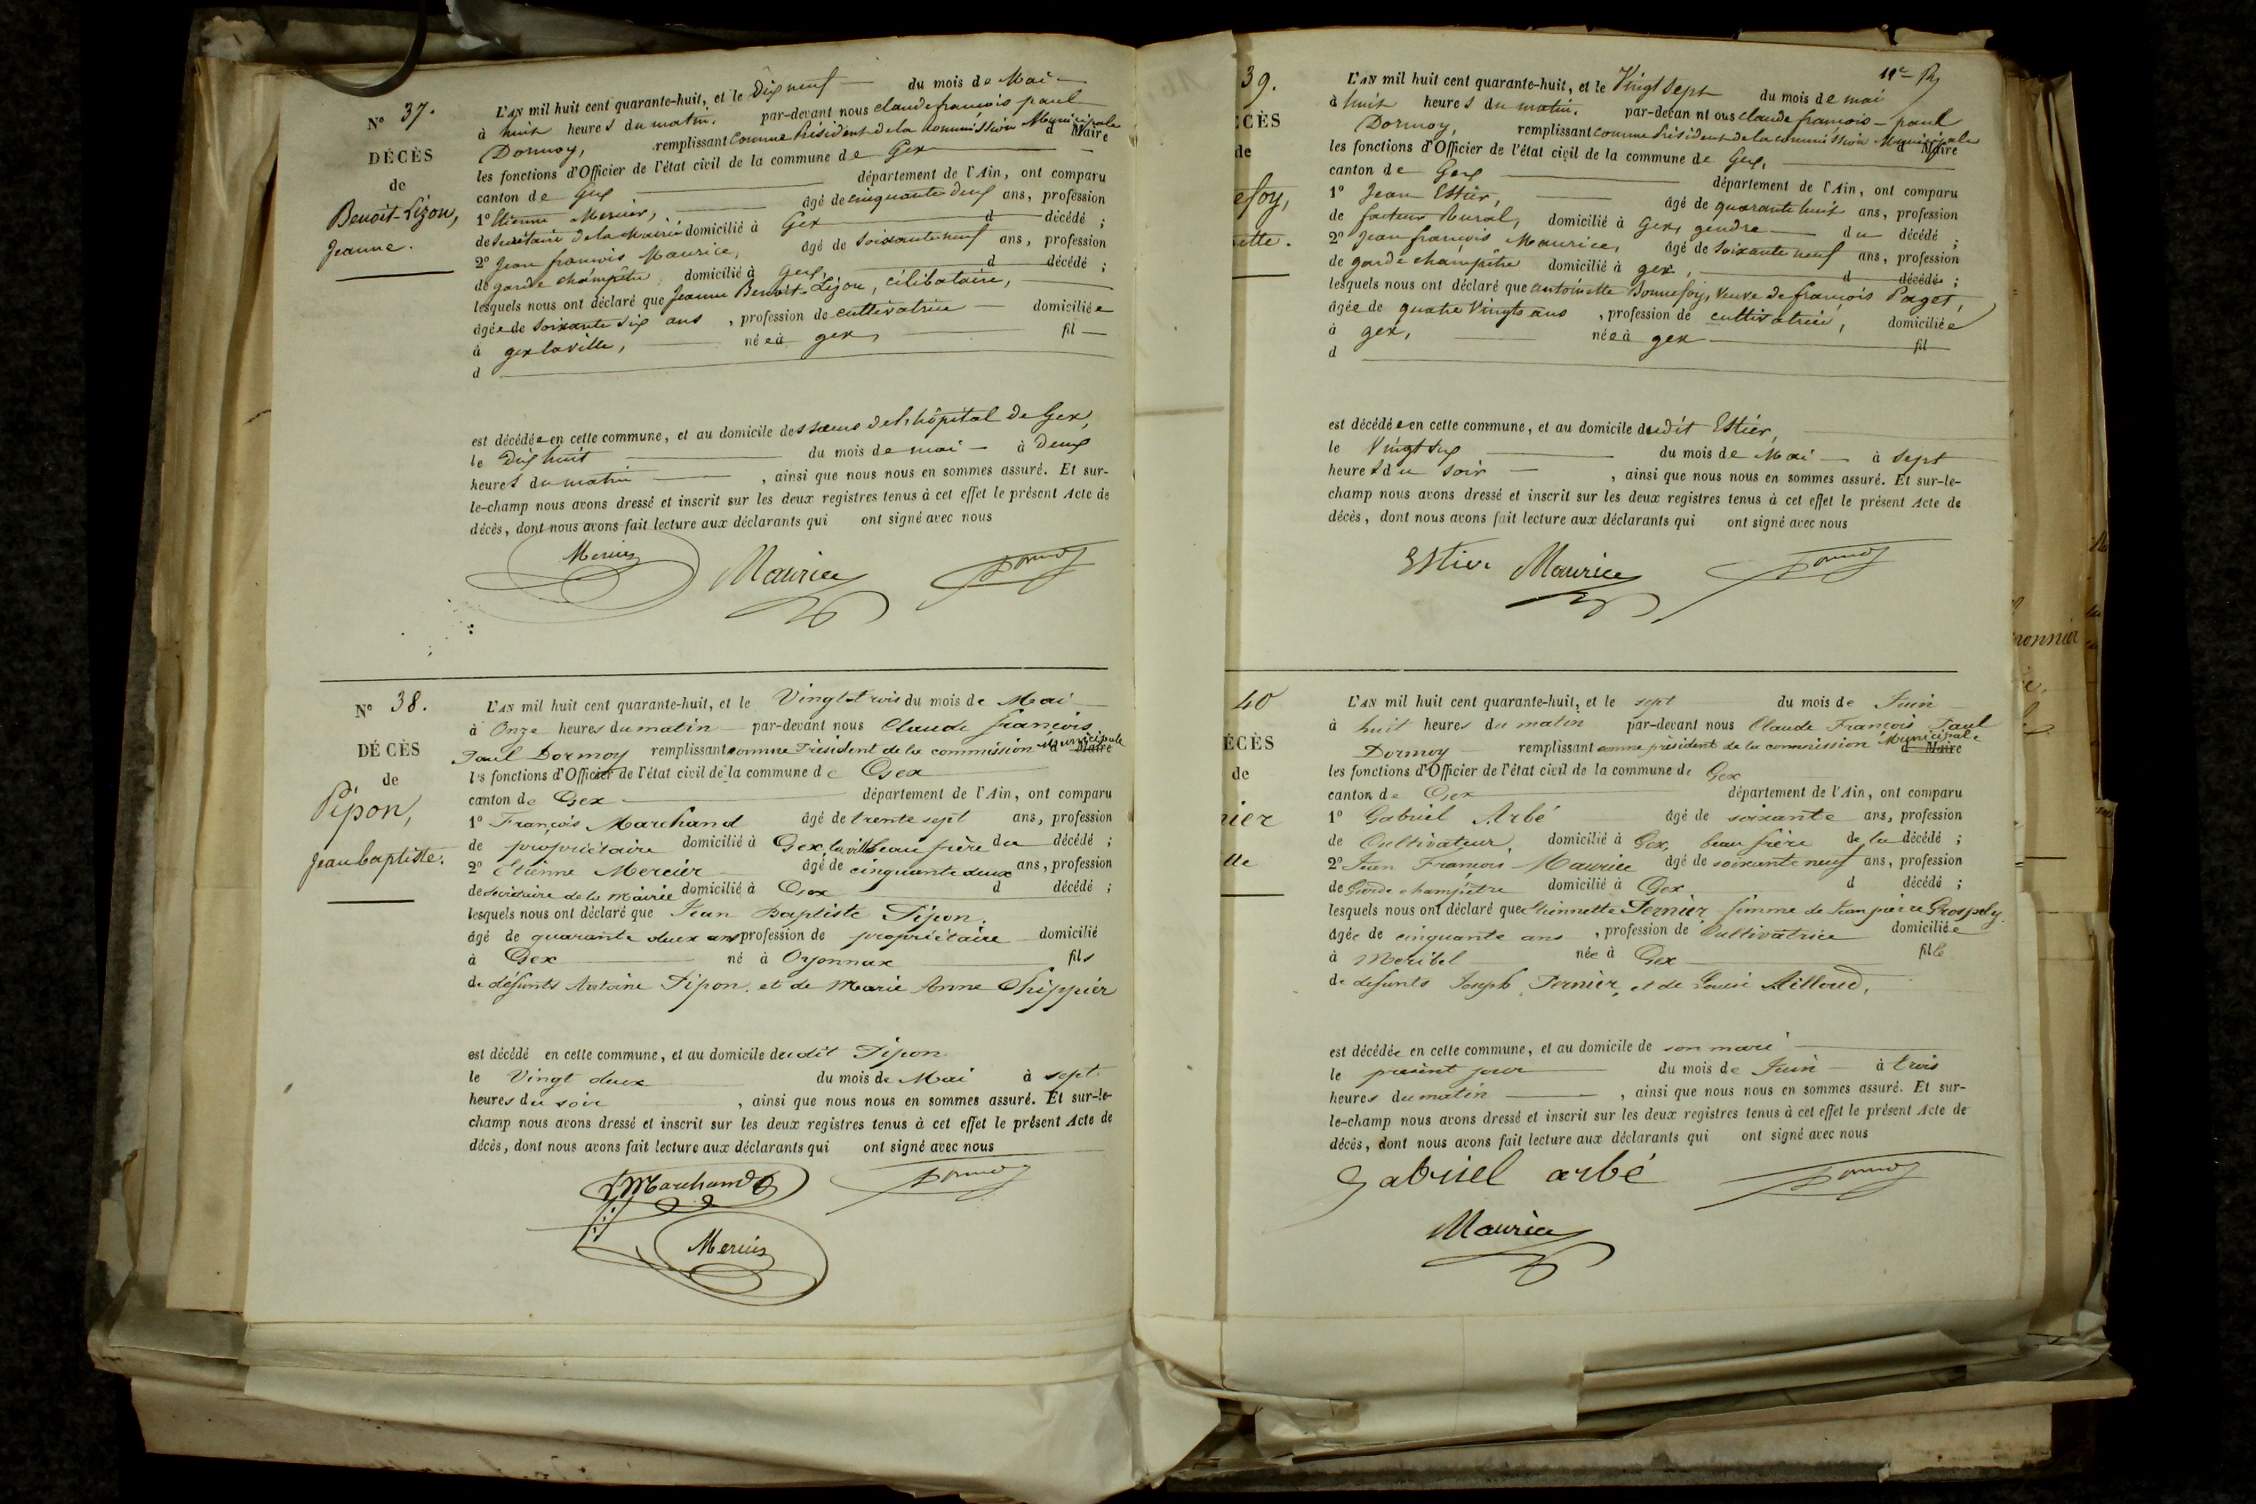 N° 37.
DÉCÈS
de
Benoit-Lizon,
Jeanne.
L'AN mil huit cent quarante-huit, et le Dix neuf du mois de Mai
à huit heures du matin. par-devant nous claude françois paul
Dormoy, remplissant comme Président de la Commission Municipale d Maire
les fonctions d'Officier de l'état civil de la commune de Gex
canton de Gex département de l'Ain, ont comparu
1° Etienne Mercier, âgé de cinquante deux ans, profession
de Secrétaire de la Mairie domicilié à Gex d décédé ;
2° Jean françois Maurice, âgé de Soixante neuf ans, profession
de garde champêtre domicilié à Gex, d décédé ;
lesquels nous ont déclaré que Jeanne Benoit-Lizon, célibataire,
âgée de Soixante Six ans , profession de cultivatrice domiciliée
à gex la ville, née à gex, fil
d
est décédée en cette commune, et au domicile des sœurs de l'hôpital de Gex,
le Dix huit du mois de mai à Deux
heures du matin , ainsi que nous nous en sommes assuré. Et sur-
le-champ nous avons dressé et inscrit sur les deux registres tenus à cet effet le présent Acte de
décès, dont nous avons fait lecture aux déclarants qui ont signé avec nous
Mercier Maurice Dormoy
N° 38.
DÉCÈS
de
Pipon,
Jean baptiste.
L'AN mil huit cent quarante-huit, et le Vingt trois du mois de Mai
à Onze heures du matin par-devant nous Claude François
Paul Dormoy remplissant comme Président de la commission Municipale d Maire
les fonctions d'Officier de l'état civil de la commune de Gex
canton de Gex département de l'Ain, ont comparu
1° François Marchand âgé de trente sept ans, profession
de propriétaire domicilié à Gex, la ville beau frère du décédé ;
2° Etienne Mercier âgé de cinquante deux ans, profession
de Secrétaire de la Mairie domicilié à Gex d décédé ;
lesquels nous ont déclaré que Jean Baptiste Pipon.
âgé de quarante deux ans profession de propriétaire domicilié
à Gex né à Oyonnax fils
de défunts Antoine Pipon. et de Marie Anne Chippier
est décédé en cette commune, et au domicile dudit Pipon
le Vingt deux du mois de Mai à sept
heures du soir , ainsi que nous nous en sommes assuré. Et sur-le-
champ nous avons dressé et inscrit sur les deux registres tenus à cet effet le présent Acte de
décès, dont nous avons fait lecture aux déclarants qui ont signé avec nous
Marchand Dormoy
Mercier
39.
ÉCÈS
de
efoy,
ette.
L'AN mil huit cent quarante-huit, et le Vingt Sept du mois de mai
à huit heures du matin. par-devant nous claude françois-paul
Dormoy, remplissant comme Président de la commission Municipale d Maire
les fonctions d'Officier de l'état civil de la commune de Gex,
canton de Gex département de l'Ain, ont comparu
1° Jean Estier, âgé de quarante huit ans, profession
de facteur Rural, domicilié à Gex, gendre du décédé ;
2° Jean françois Maurice, âgé de Soixante neuf ans, profession
de garde champêtre domicilié à gex, d décédé ;
lesquels nous ont déclaré que antoinette Bonnefoy, Veuve de françois Paget,
âgée de quatre Vingts ans , profession de cultivatrice, domiciliée
à gex, née à gex fil
d
est décédée en cette commune, et au domicile dudit Estier,
le Vingt Six du mois de Mai à Sept
heures du soir , ainsi que nous nous en sommes assuré. Et sur-le-
champ nous avons dressé et inscrit sur les deux registres tenus à cet effet le présent Acte de
décès, dont nous avons fait lecture aux déclarants qui ont signé avec nous
Estier Maurice Dormoy
40
ÉCÈS
de
nier
tte
L'AN mil huit cent quarante-huit, et le sept du mois de Juin
à huit heures du matin par-devant nous Claude François Paul
Dormoy remplissant comme président de la commission Municipale d Maire
les fonctions d'Officier de l'état civil de la commune de Gex
canton de Gex département de l'Ain, ont comparu
1° Gabriel Arbé âgé de soixante ans, profession
de Cultivateur, domicilié à Gex, beau frère de la décédé ;
2° Jean François Maurice âgé de soixante neuf ans, profession
de Garde champêtre domicilié à Gex d décédé ;
lesquels nous ont déclaré que Etiennette Pernier femme de Jean pierre Grospely.
âgée de cinquante ans , profession de Cultivatrice domiciliée
à Meribel née à Gex fille
de défunts Joseph Pernier, et de Louise Ailloud,
est décédée en cette commune, et au domicile de son mari
le présent jour du mois de Juin à trois
heures du matin , ainsi que nous nous en sommes assuré. Et sur-
le-champ nous avons dressé et inscrit sur les deux registres tenus à cet effet le présent Acte de
décès, dont nous avons fait lecture aux déclarants qui ont signé avec nous
Gabriel arbé Dormoy
Maurice